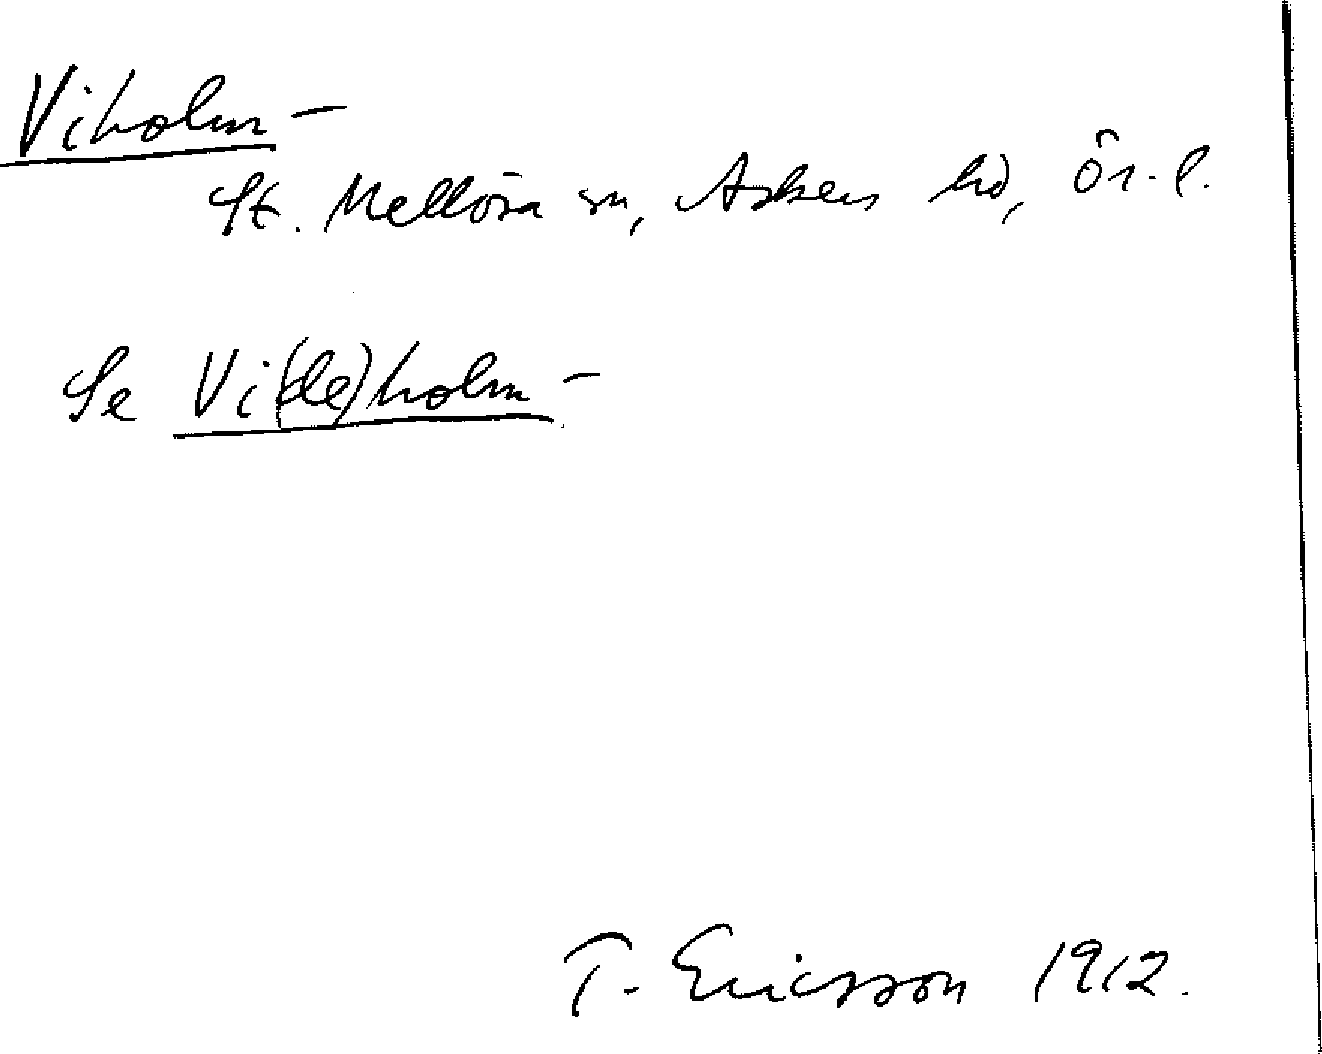 Viholm-
St. Mellösa sn, Askers hd, Ör. l.
Se Vi(de)holm-
T. Ericsson 1912.